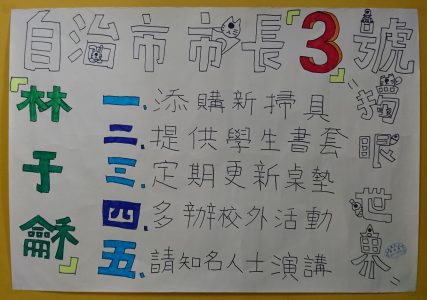 自治市市長「3」號
「林于龢」
一.添購新掃具
二.提供學生書套
三.定期更新桌墊
四.多辦校外活動
五.請知名人士演講
〝猫眼世界〞